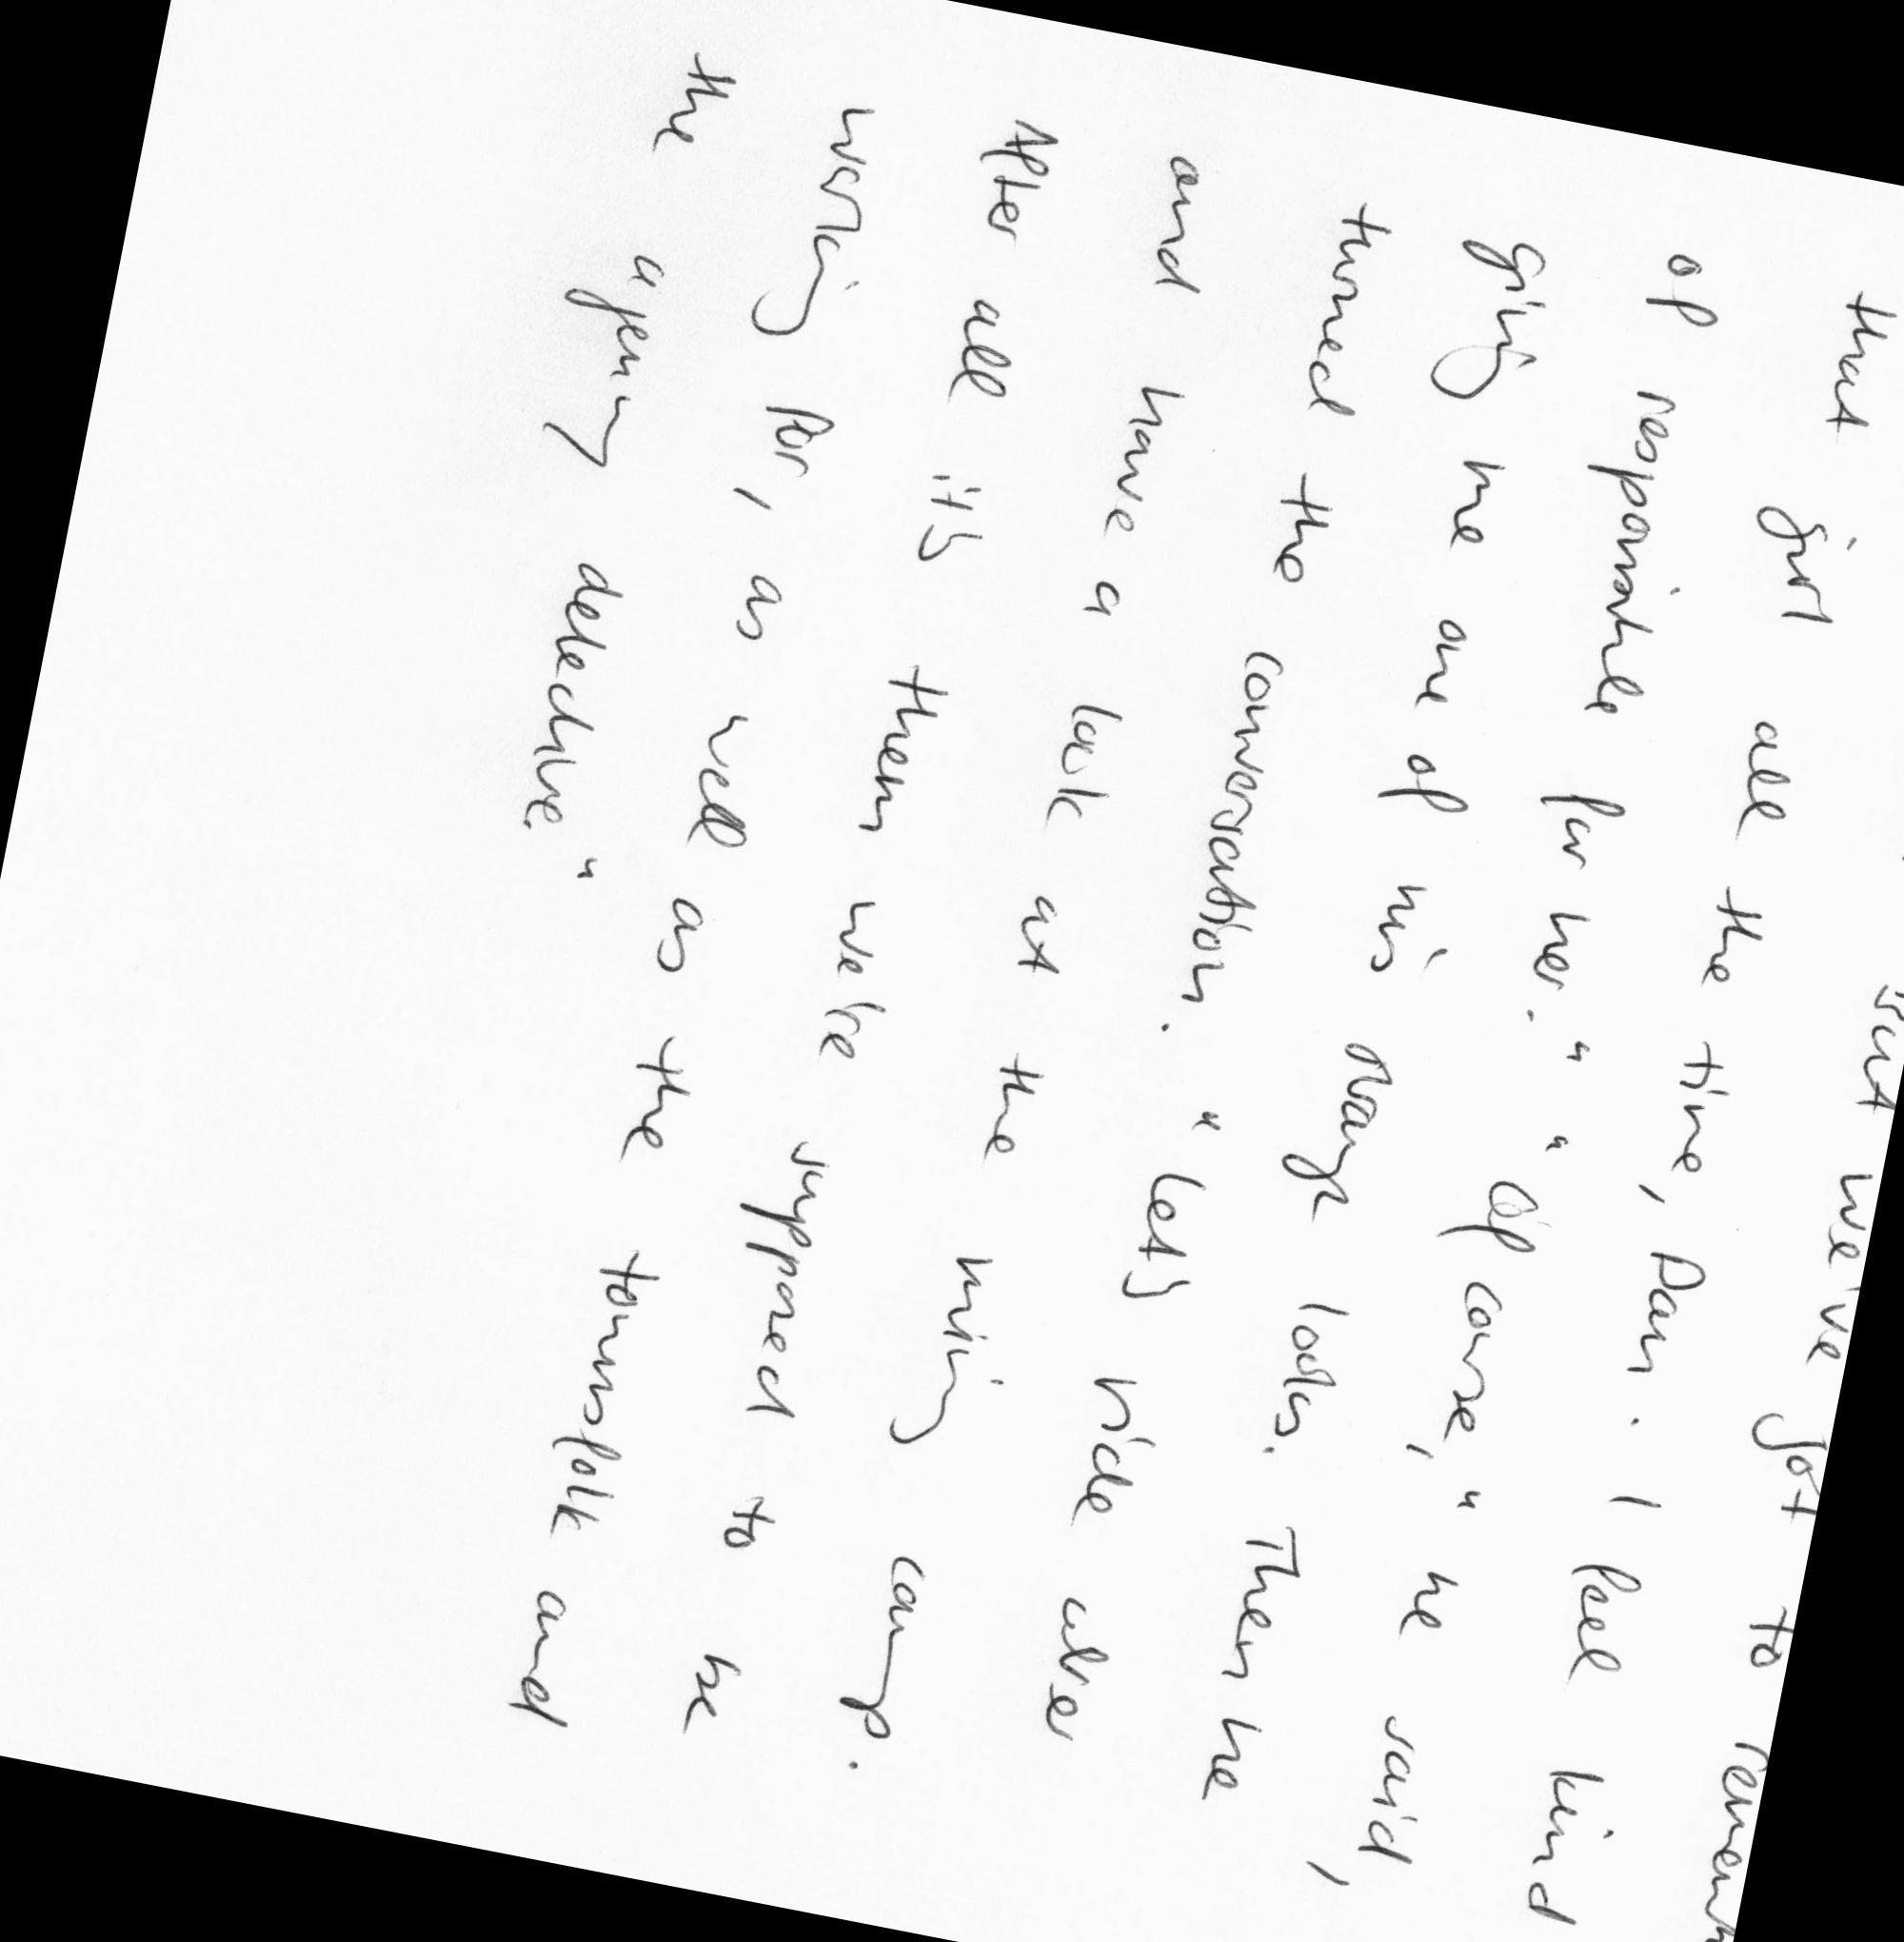 but we've got to
that girl all the time, Dan. I feel kind
of responsible for her." "Of course," he said,
giving me one of his strange looks. Then he
turned the conversation. "Let's ride over
and have a look at the mining camp.
After all it's them we're supposed to be
working for, as well as the townsfolk and
the agency detective."